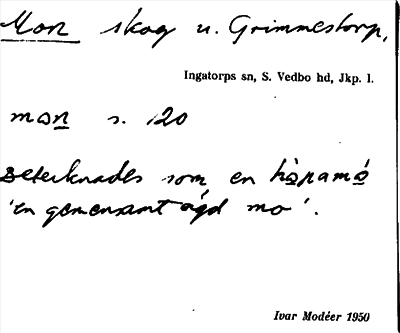 Mon skog u. Grimmestorp,
Ingatorps sn, S. Vedbo hd, Jkp. l.
mon s. 120
betecknades som en håramo
'en gemensamt ägd mo'.
Ivar Modéer 1950